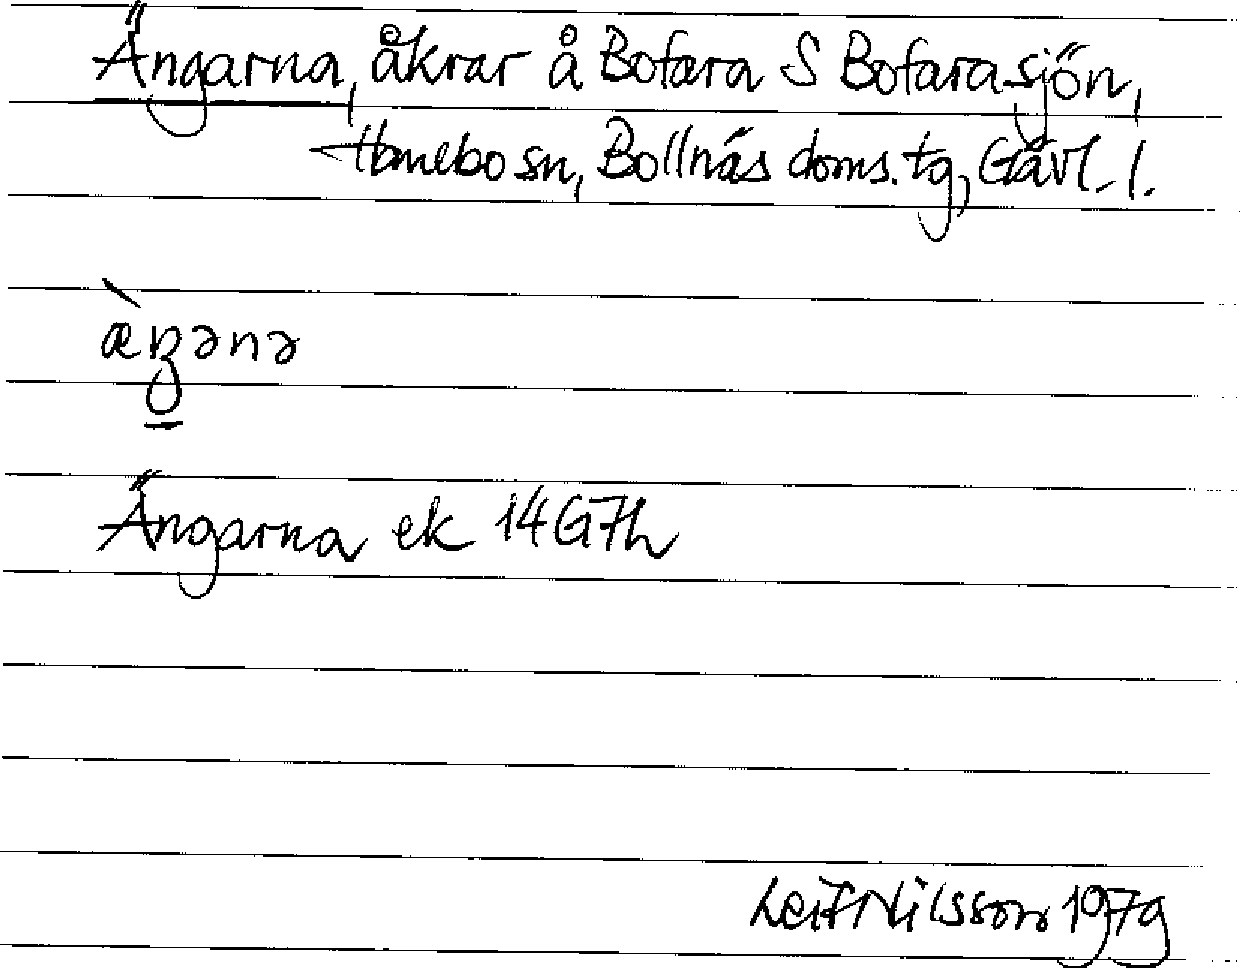 Ängarna, åkrar å Bofara S Bofarasjön,
Hanebo sn, Bollnäs doms. tg, Gävl. l.
æŋənə
Ängarna ek 14G7h
Leif Nilsson 1979